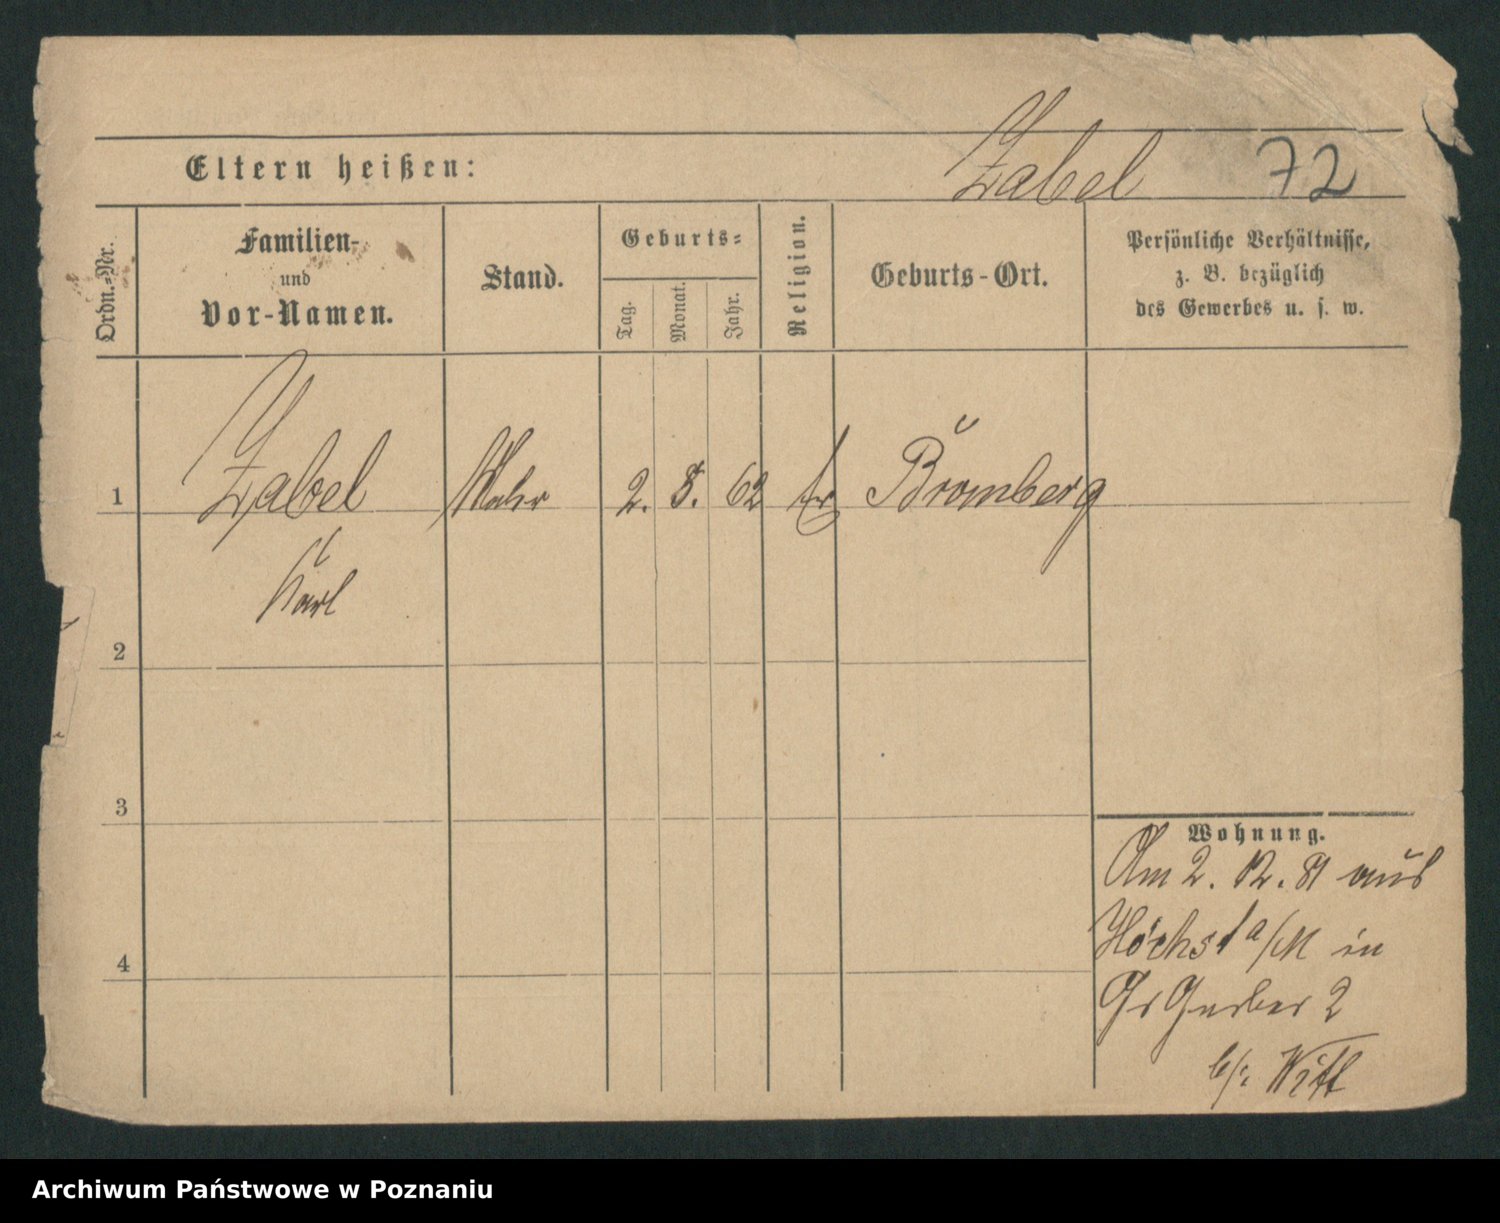 Eltern heißen: Zabel 72
Ordn.-Nr.
Familien-
und
Vor-Namen.
Stand.
Geburts-
Tag.
Monat.
Jahr.
Religion.
Geburts-Ort.
Persönliche Verhältnisse,
z. B. bezüglich
des Gewerbes u. s. w.
1 Zabel 2. 8. 62 Bromberg
Karl
2
3
4
Wohnung.
Am 2. 12. 81 aus
Höchst a/M in
Gr Gerber 2
b/: Witt
Archiwum Państwowe w Poznaniu